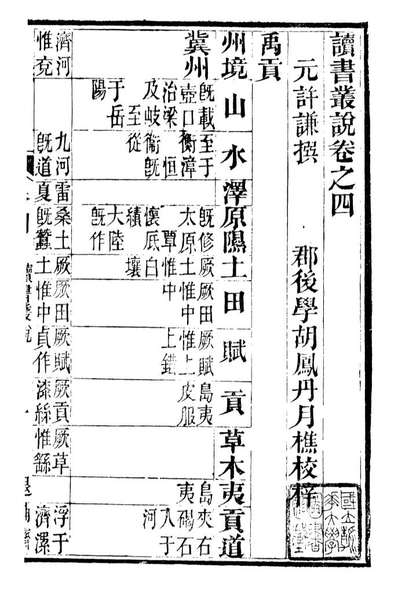 讀書叢說卷之四
元許謙撰 郡後學胡鳳丹月樵校梓
禹貢
州境 山 水 澤 原隰 土 田 賦 貢 草木 夷 貢道
冀州
既載壺口治梁及岐至于岳陽
至于衡漳恒衛既從
既修太原覃懷底績大陸既作
厥土惟白壤
厥田惟中中
厥賦惟上上錯
島夷皮服
島夷
夾右碣石入于河
濟河惟兗
九河既道
雷夏既
桑土既蠶
厥土
厥田惟中
厥賦貞作
厥貢漆絲
厥草惟繇
浮于濟漯
讀書叢說